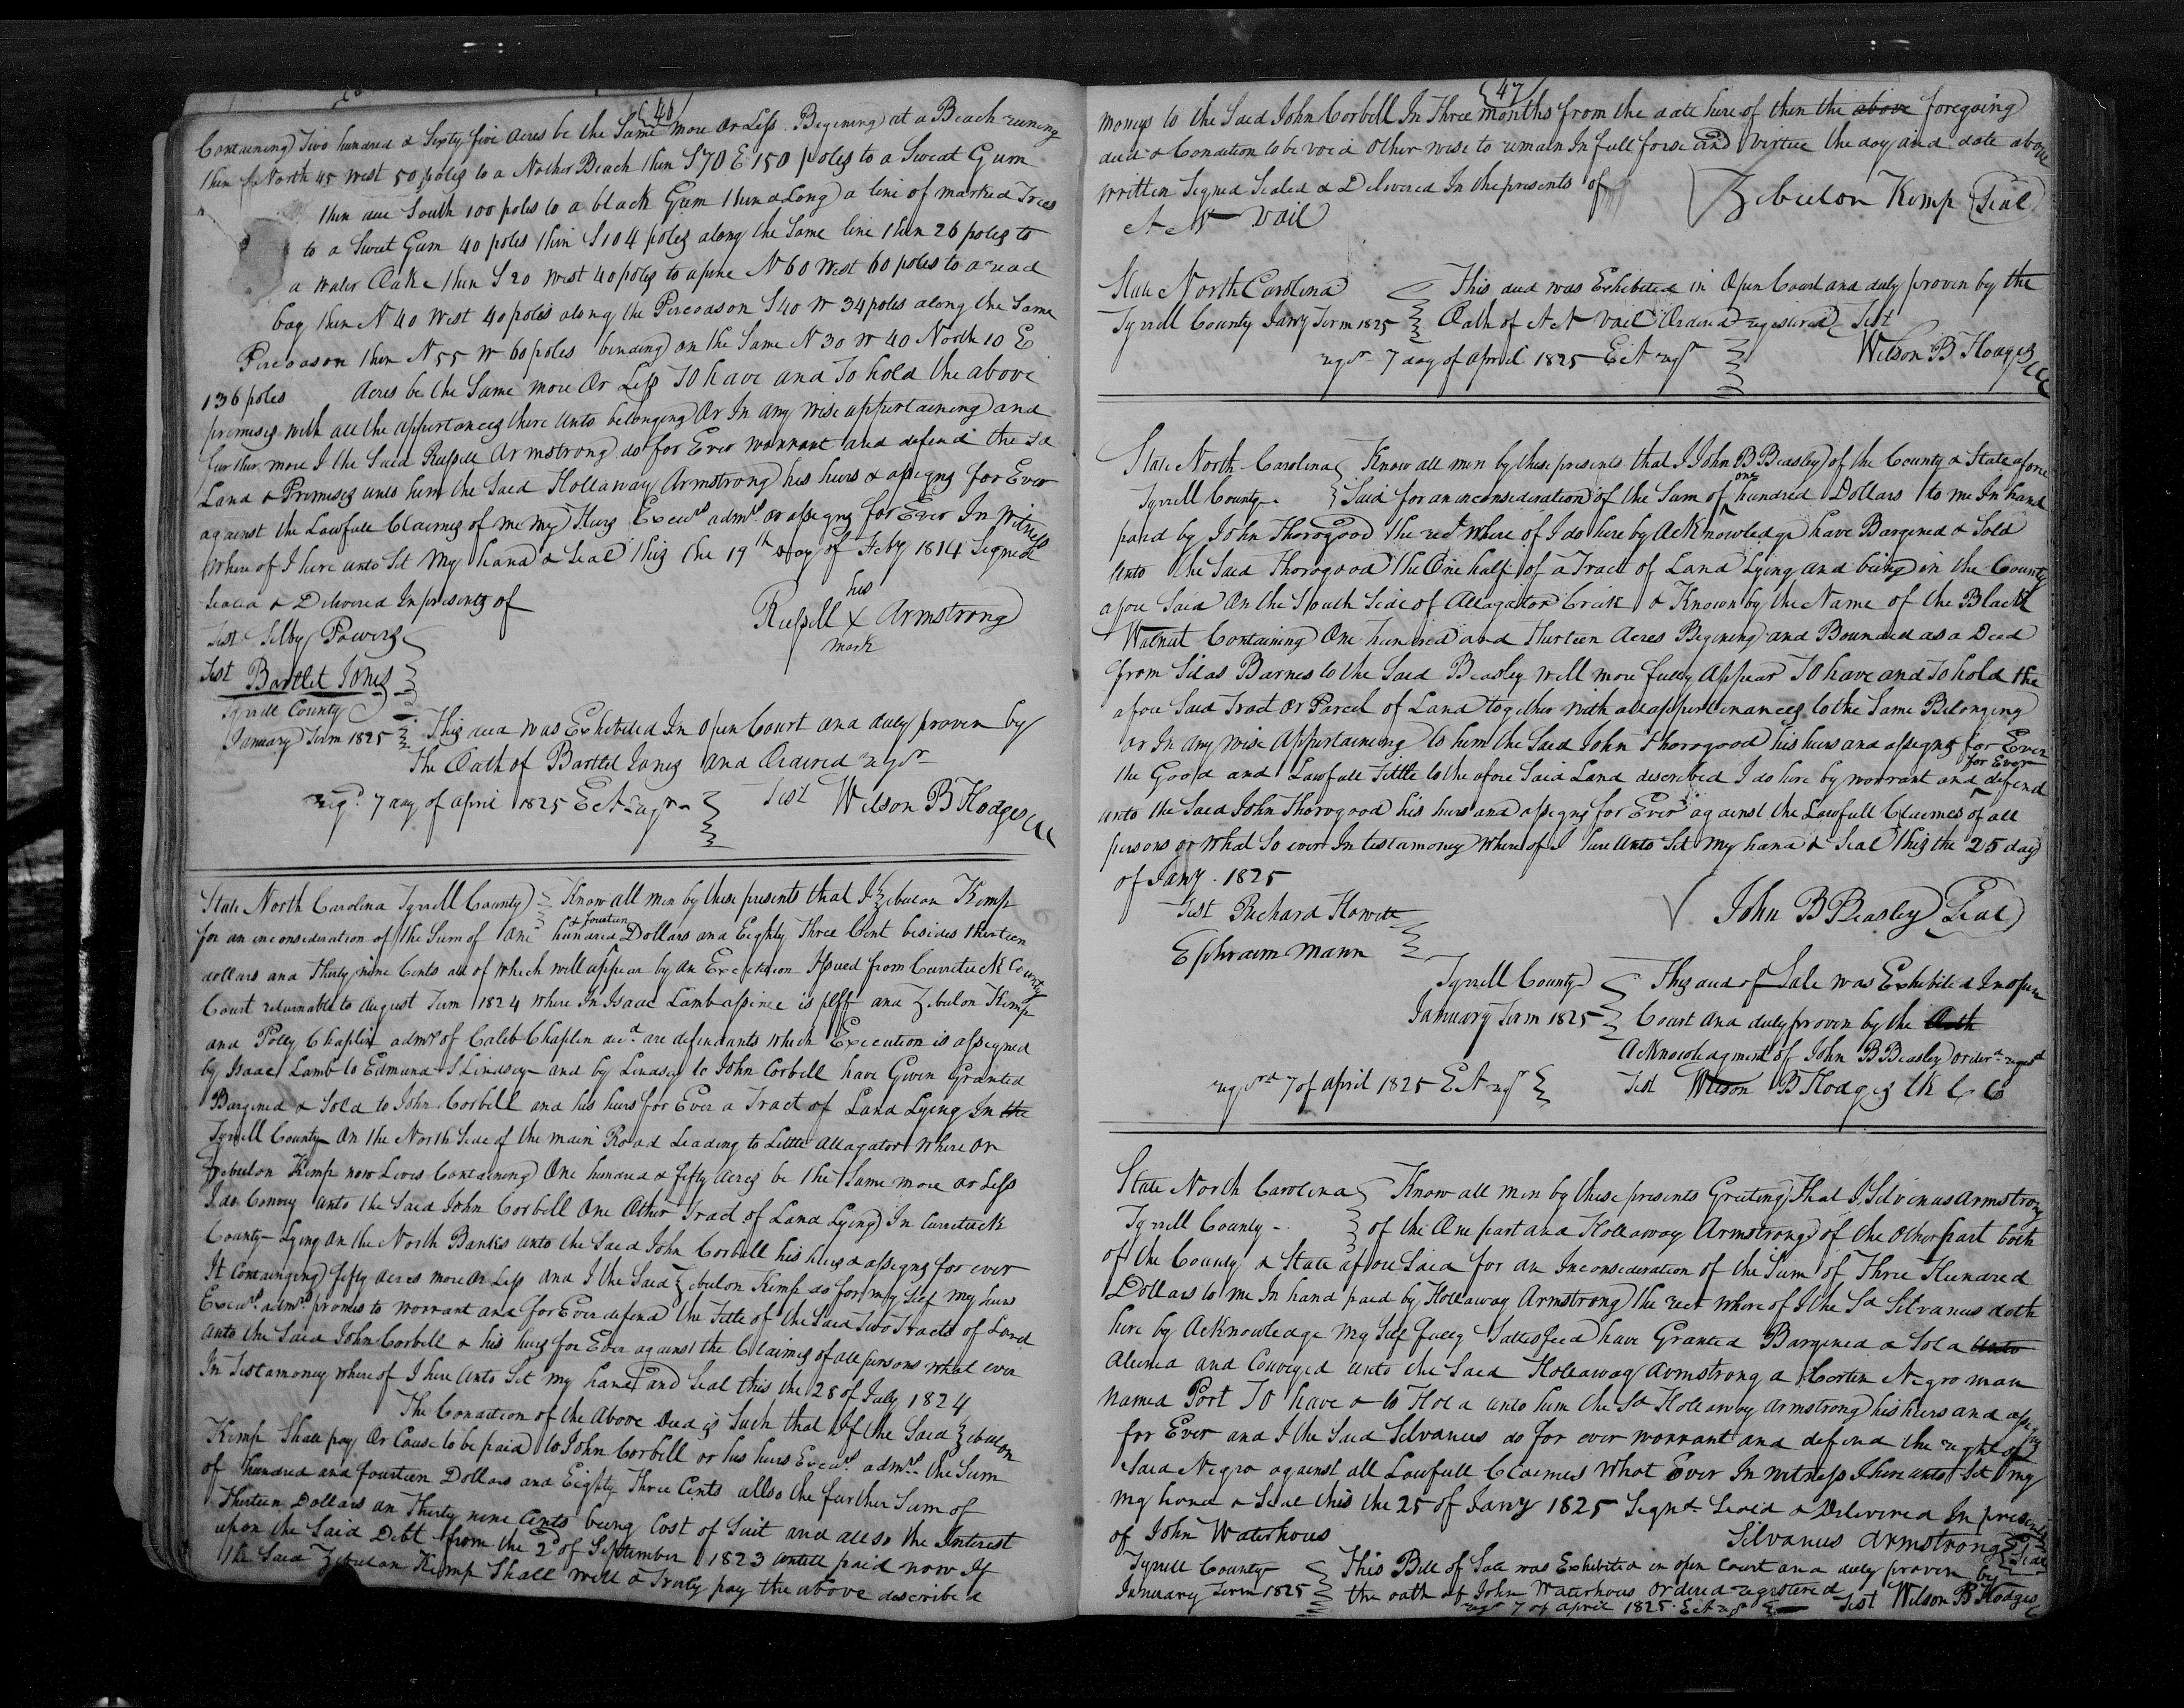 46
Containing Two hundred & Sixty five Acres be the Same more Or Less Begining at a Beach runing
then North 45 West 50 poles to a Nother Beach then S 70 E 150 poles to a Sweat Gum
then due South 100 poles to a black Gum then along a line of marked Trees
to a Sweet Gum 40 poles then S 10 4 poles along the Same line then 26 poles to
a water Oake then S 20 West 40 poles to a pine N 60 West 60 poles to a read
bay then N 40 West 40 poles along the Percoason S 40 W 34 poles along the Same
Percoason then N 55 W 60 poles binding on the Same N 30 W 40 North 10 E
136 poles Acres be the Same more Or Less To have and To hold the above
premises with all the appertances there unto belonging Or In any wise appertaining and
further more I the Said Russell Armstrong do for Ever warrant and defend the sd
Land & Premises unto him the Said Hollaway Armstrong his heirs & assigns for Ever
against the Lawfull Claimes of me my Heirs Execurs admrs or assigns for Ever In Witness
Where of I here unto Set My hand & Seal this the 19th day of Feby 1814 Signed
Sealed & Delivered In presents of
his
Russell X Armstrong
mark
Test Selby Powers
Test Bartlet Jones
Tyrrell County
January Term 1825 This deed was Exhibited In open Court and duly proven by
The Oath of Bartlet Jones and Ordered regsr
regd 7 day of april 1825 E A regr Test Wilson B Hodges Clk
State North Carolina Tyrrell County Know all men by these presents that I Zebulon Kemp
for an inconsideration of the Sum of One hundred & fourteen Dollars and Eighty Three Cent besides thirteen
dollars and Thirty nine Cents all of which will appear by an Execution Issued from Currituck County
Court returnable to August Term 1824 where In Isaac Lamb assinee is plff and Zebulon Kemp
and Polly Chaplin admr of Caleb Chaplin decd are defendants which Execution is assigned
by Isaac Lamb to Edmund S Lindsey and by Lindsey to John Corbell have Given Granted
Bargined & Sold to John Corbell and his heirs for Ever a Tract of Land Lying In the
Tyrrell County On the North Side of the main Road Leading to Little Allagator where on
Zebulon Kemp now Lives Containing One hundred & fifty acres be the Same more or Less
I do Convey unto the Said John Corbell One Other Tract of Land Lying In Currituck
County Lying On the North Banks unto the Said John Corbell his heirs & assigns for ever
It Containging fifty acres more Or Less and I the Said Zebulon Kemp do for my Self my heirs
Execurs admrs promes to warrant and for Ever defend the Title of the Said Two Tracts of Land
unto the Said John Corbell & his heirs for Ever against the Claimes of all persons what ever
In Testamoney where of I here unto Set my hand and Seal this the 28 of July 1824
The Condition of the Above Deed is Such that If the Said Zebulon
Kemp Shall pay Or Cause to be paid to John Corbell or his heirs Execurs admrs the Sum
of hundred and fourteen Dollars and Eighty Three Cents allso the further Sum of
Thirteen Dollars an Thirty nine Cents being Cost of Suit and allso the Interest
upon the Said Debt from the 2d of September 1823 untill paid now If
the Said Zebulon Kemp Shall well & Truly pay the above described
47
moneys to the Said John Corbell In Three months from the date here of then the above foregoing
deed & Condition to be void Other wise to remain In full forse and Virtue the day and date above
written Signed Sealed & Delivered In the presents of
Zebulon Kemp Seal
A N Vail
State North Carolina This deed was Exhibited in Open Court and duly proven by the
Tyrrell County Jany Term 1825 Oath of A N Vail Ordered regestered Test
regsr 7 day of april 1825 E A regr Wilson B Hodges Clk
State North Carolina Know all men by these presents that I John B Beasley of the County & State afore
Tyrrell County Said for an inconsideration of the Sum of one hundred Dollars to me In hand
paid by John Thorogood the rect where of I do here by Acknowledge have Bargened & Sold
Unto the Said Thorogood the One half of a Tract of Land Lying and being in the County
afore Said On the South Side of Allagator Creek & Known by the Name of the Black
Walnut Containing One hundred and Thirteen Acres Begining and Bounded as a Deed
from Silas Barnes to the Said Beasley will more fully Appear To have and To hold the
afore Said Tract Or Parcel of Land together with all appertinances to the Same Belonging
or In any wise Appertaining to him the Said John Thorogood his heirs and assigns for Ever
the Good and Lawfull Tittle to the afore Said Land described I do here by warrant and for Ever defend
unto the Said John Thorogood his heirs and assigns for Ever against the Lawfull Claimes of all
persons or what So ever In testamoney where of I here unto Set My hand & Seal this the 25 day
of Jany 1825
Test Richard Howett
John B Beasley Seal
Ephraim Mann
Tyrrell County This deed of Sale was Exhibited In open
January Term 1825 Court and duly proven by the Oath
Acknowledgment of John B Beasley orderd regesd
regsrd 7 of april 1825 E A regr Test Wilson B Hodges Clk C C
State North Carolina Know all men by these presents Greeting That I Silvinus Armstrong
Tyrrell County of the One part and Hollaway Armstrong of the Other part both
of the County & State afore Said for an Inconsideration of the Sum of Three Hundred
Dollars to me In hand paid by Hollaway Armstrong the rect where of I the Sd Silvanus doth
here by Acknowledge my Self fully Sattesfeed have Granted Bargined & Sold unto
Aliened and Conveyed unto the Said Hollaway Armstrong a Certin Negro man
named Port To have & to Hold unto him the Sd Hollaway Armstrong his heirs and assigns
for Ever and I the Said Silvanus do for ever warrant and defend the right of
Said Negro against all Lawfull Claimes What Ever In witness I here unto Set my
my hand & Seal this the 25 of Jany 1825 Signd Seald & Delivered In presents
of John Waterhous Silvanus Armstrong Seal
Tyrrell County This Bill of Sale was Exhibited in open Court and duly proven by
January Term 1825 the oath of John Waterhous Ordered regestered
regsr 7 of april 1825 E A regr Test Wilson B Hodges